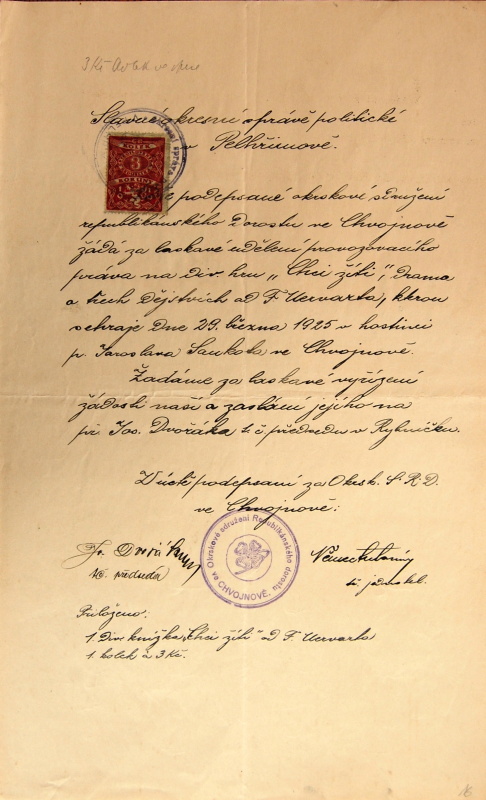 3 Kč
Slavné okresní správě politické
v Pelhřimově.
podepsané okrskové sdružení
republikánského dorostu ve Chvojnově
žádá za laskavé udělení provozovacího
práva na div. hru „Chci žíti", drama
o třech dějstvích od F. Uervarta, kterou
sehraje dne 29. března 1925 v hostinci
p. Jaroslava Saukota ve Chvojnově.
Žádáme za laskavé vyřízení
žádosti naší a zaslání jejího na
př. Jos. Dvořáka t. č. předsedu v Rybníčku.
V úctě podepsaní za Okrsk. S. R. D.
ve Chvojnově:
Okrskové sdružení Republikánského dorostu
ve CHVOJNOVĚ.
Jos. Dvořák
tč. předseda
Němec Antonín
t. č. jednatel.
Přiloženo.
1. Div. knížka „Chci žíti" od F. Uervarta
1. kolek à 3 Kč.
KOLEK
3
KORUNY
16